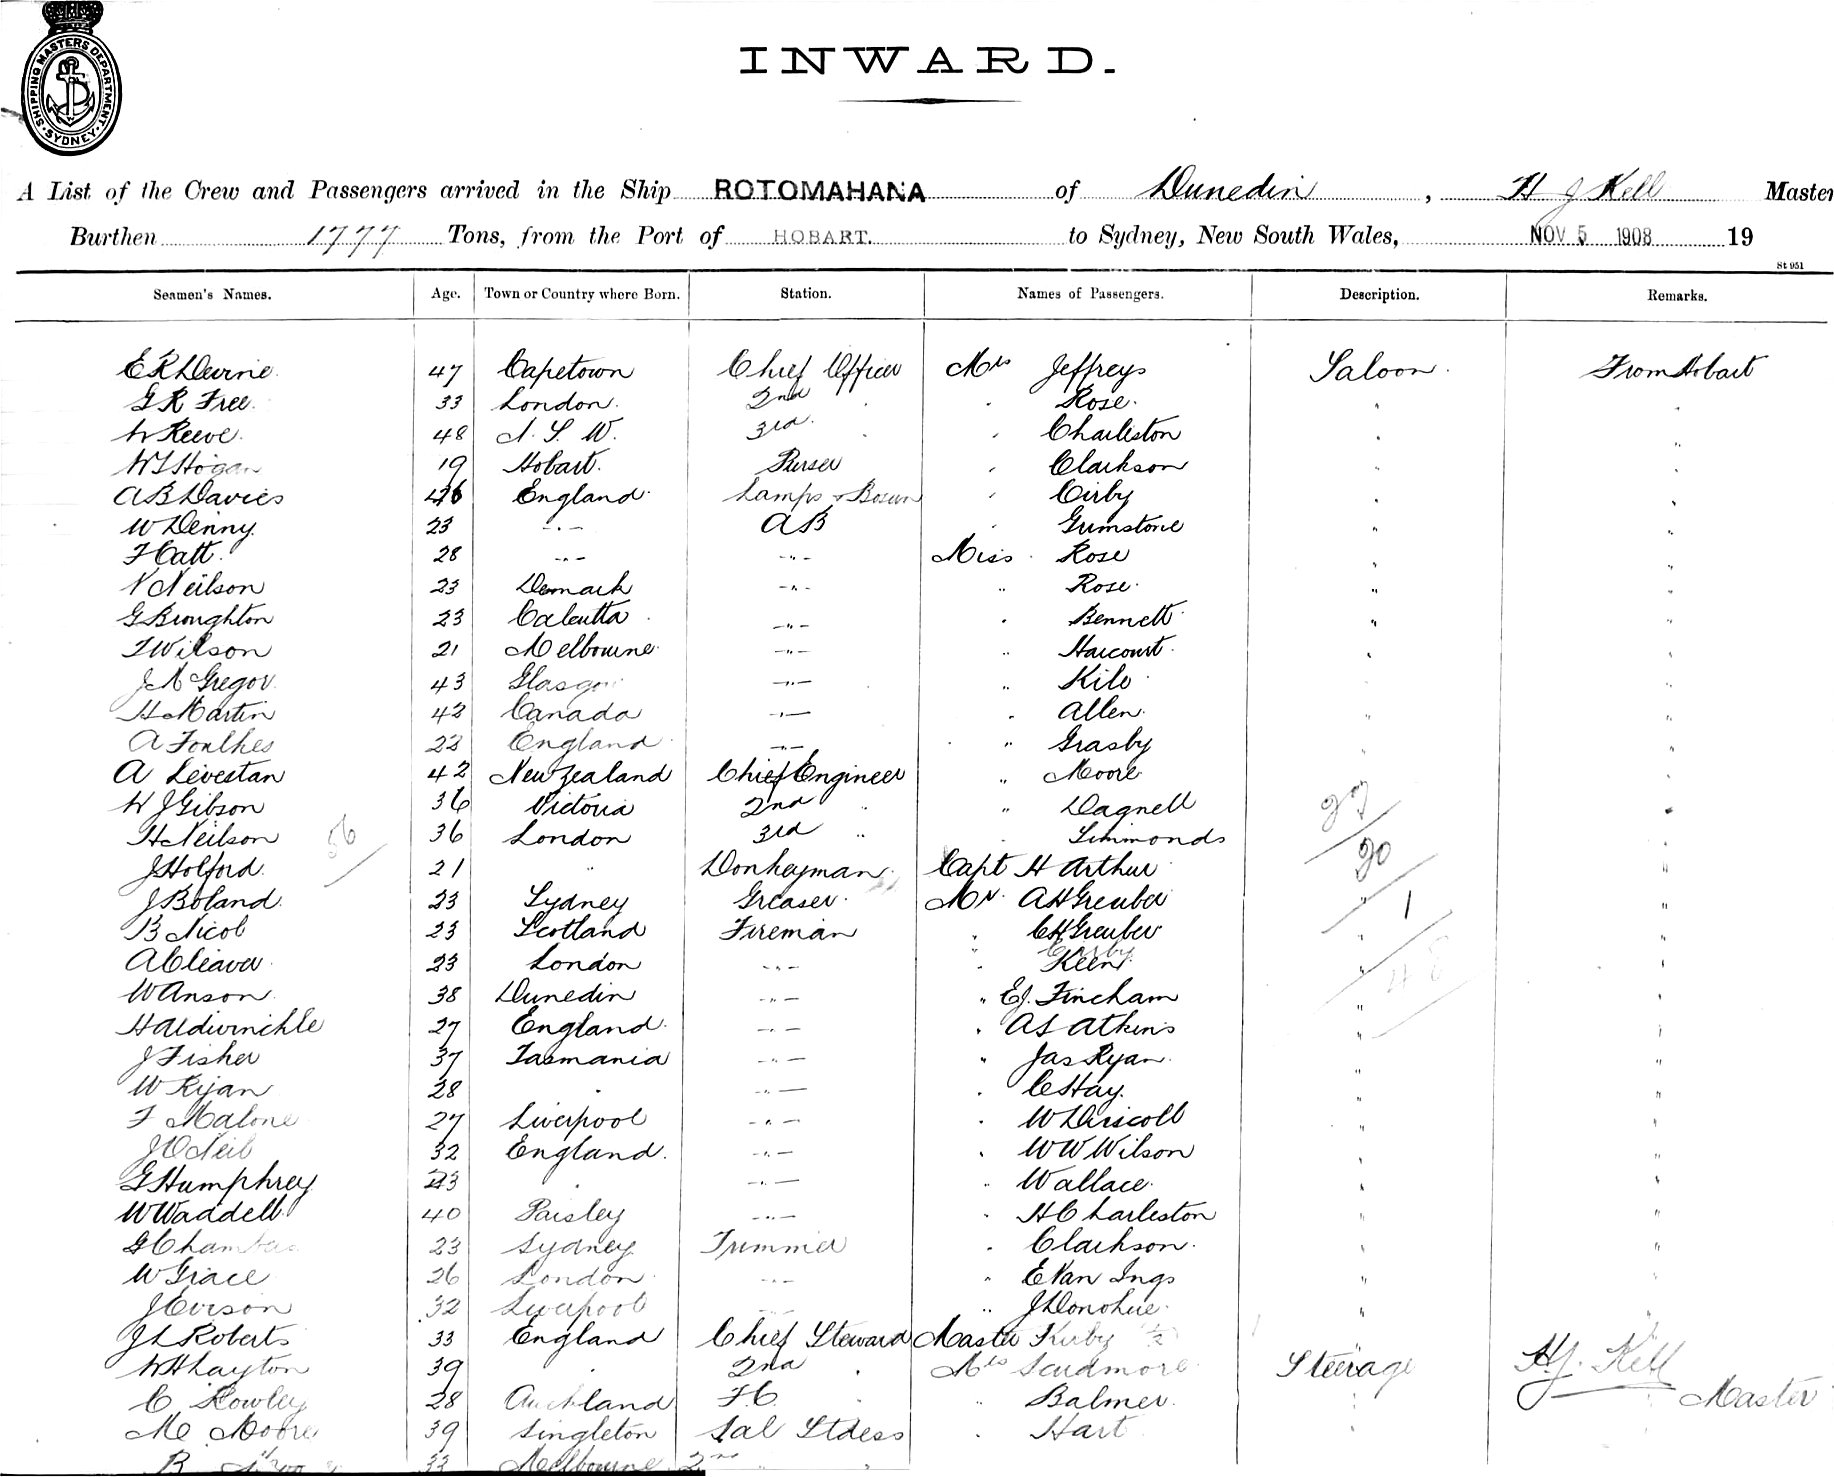 SHIPPING MASTERS DEPARTMENT. SYDNEY
INWARD.
A List of the Crew and Passengers arrived in the Ship ROTOMAHANA of Dunedin, H J Kell Master
Burthen 1777 Tons, from the Port of HOBART. to Sydney, New South Wales, NOV 5 1908 19
St 951
Seamen's Names. Age. Town or Country where Born. Station. Names of Passengers. Description. Remarks.
E R Devine 47 Capetown Chief Officer Mrs Jeffreys Saloon From Hobart
G R Free 33 London 2nd " " Rose " "
W Reeve 48 N. S. W. 3rd " " Charleston " "
Hogan 19 Hobart Purser " Clarkson " "
A B Davies 46 England Lamps & Bosun " Cirby " "
W Denny 23 -"- A B " Grimstone " "
F Catt 28 -"- -"- Miss Rose " "
N Neilson 23 Demark -"- " Rose " "
G Broughton 23 Calcutta -"- " Bennett " "
T Wilson 21 Melbourne -"- " Harcourt " "
J McGregor 43 Glasgow -"- " " "
H Martin 42 Canada -"- " Allen " "
A Foulkes 23 England -"- " Grasby " "
A Levestan 42 New Zealand Chief Engineer " Moore "
W J Gibson 36 Victoria 2nd " " Dagnell 27 "
H Neilson 56 36 London 3rd " " Simmonds 20 "
J Holford 21 " Donkeyman Capt H Arthur "
J Boland 23 Sydney Greaser Mr A H Greuber " 1 "
B Nicol 23 Scotland Fireman " C H Greuber " "
A Cleaver 23 London -"- " Keen " 48 "
W Anson 38 Dunedin -"- " E J. Fincham " "
H Aldwinckle 27 England -"- " A S Atkins " "
J Fisher 37 Tasmania -"- " Jas Ryan " "
W Ryan 28 " -"- " C Hay " "
F Malone 27 Liverpool -"- " W Driscoll " "
J O Neil 32 England -"- " W W Wilson " "
G Humphrey 23 " -"- " Wallace " "
W Waddell 40 Paisley -"- " H Charleston " "
G Chambers 23 Sydney Trimmer " Clarkson " "
W Grace 26 London -"- " E Van Ings " "
J Evison 32 Liverpool -"- " J Donohue " "
J L Roberts 33 England Chief Steward Master Kirby
W H Layton 39 " 2nd " Mrs Scudmore Steerage H J. Kell
C Rowley 28 Auckland F C. " Balmer " Master
M Moore 39 Singleton Sal Stdess " Hart "
B 33 Melbourne 2nd "